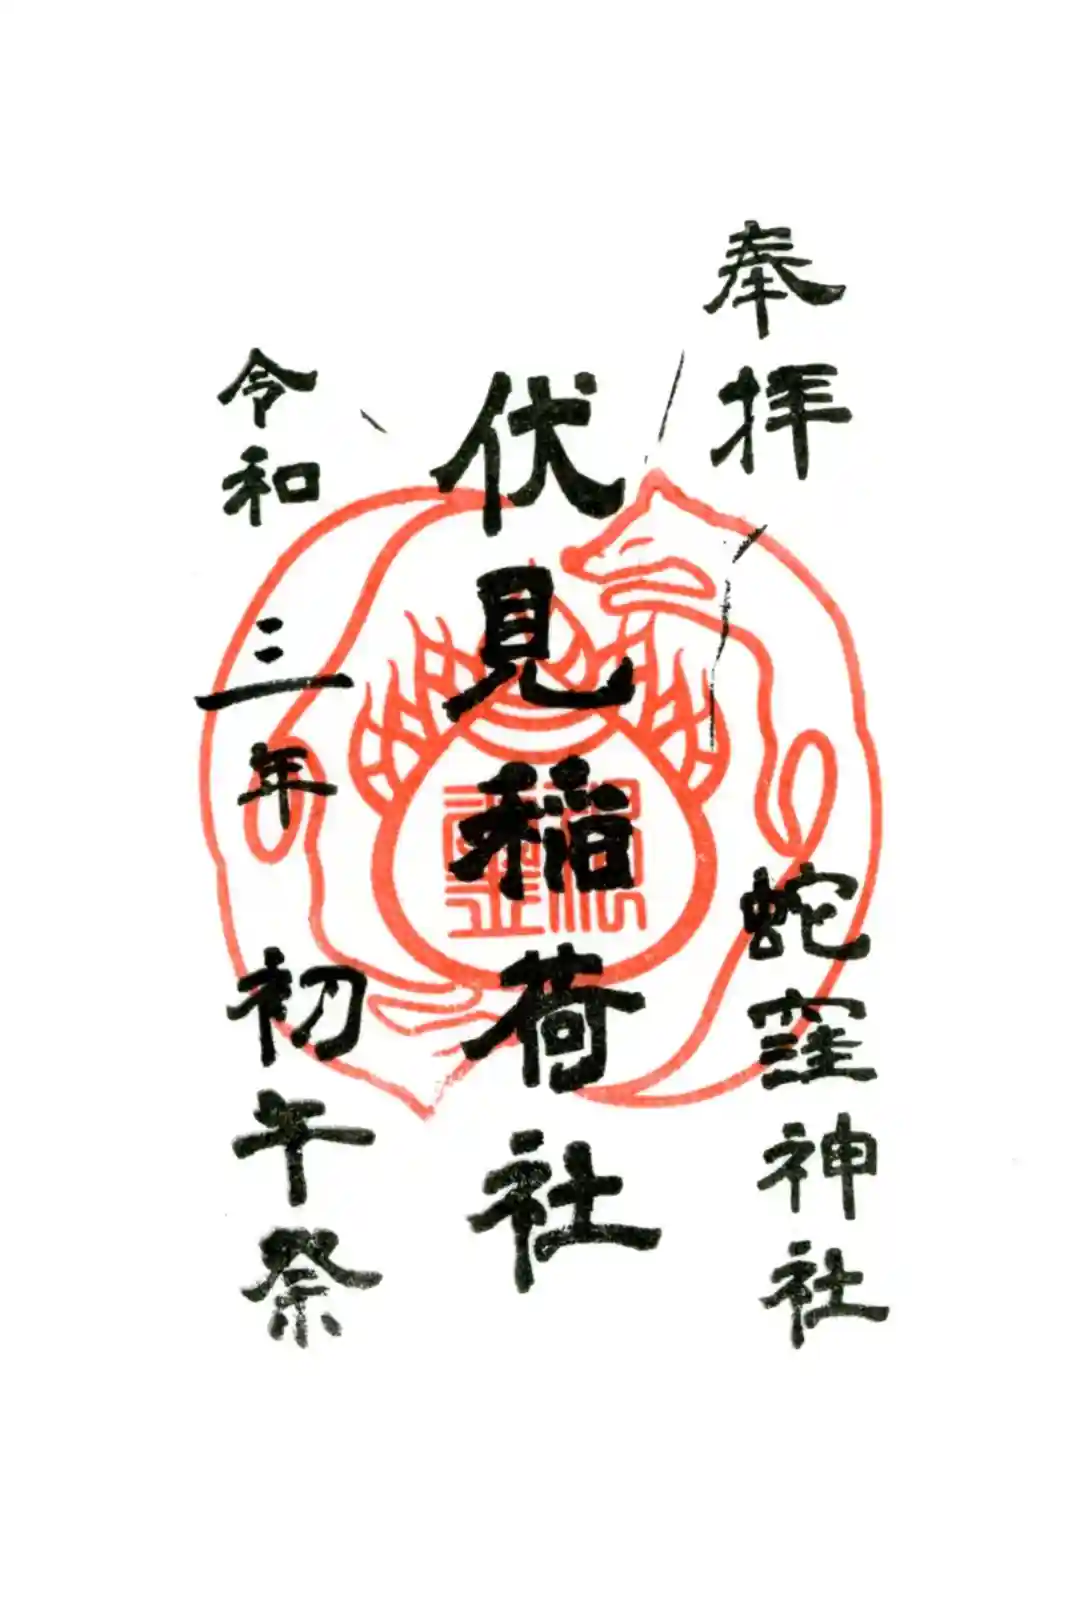 奉拝
蛇窪神社
伏見稲荷社
令和三年初午祭